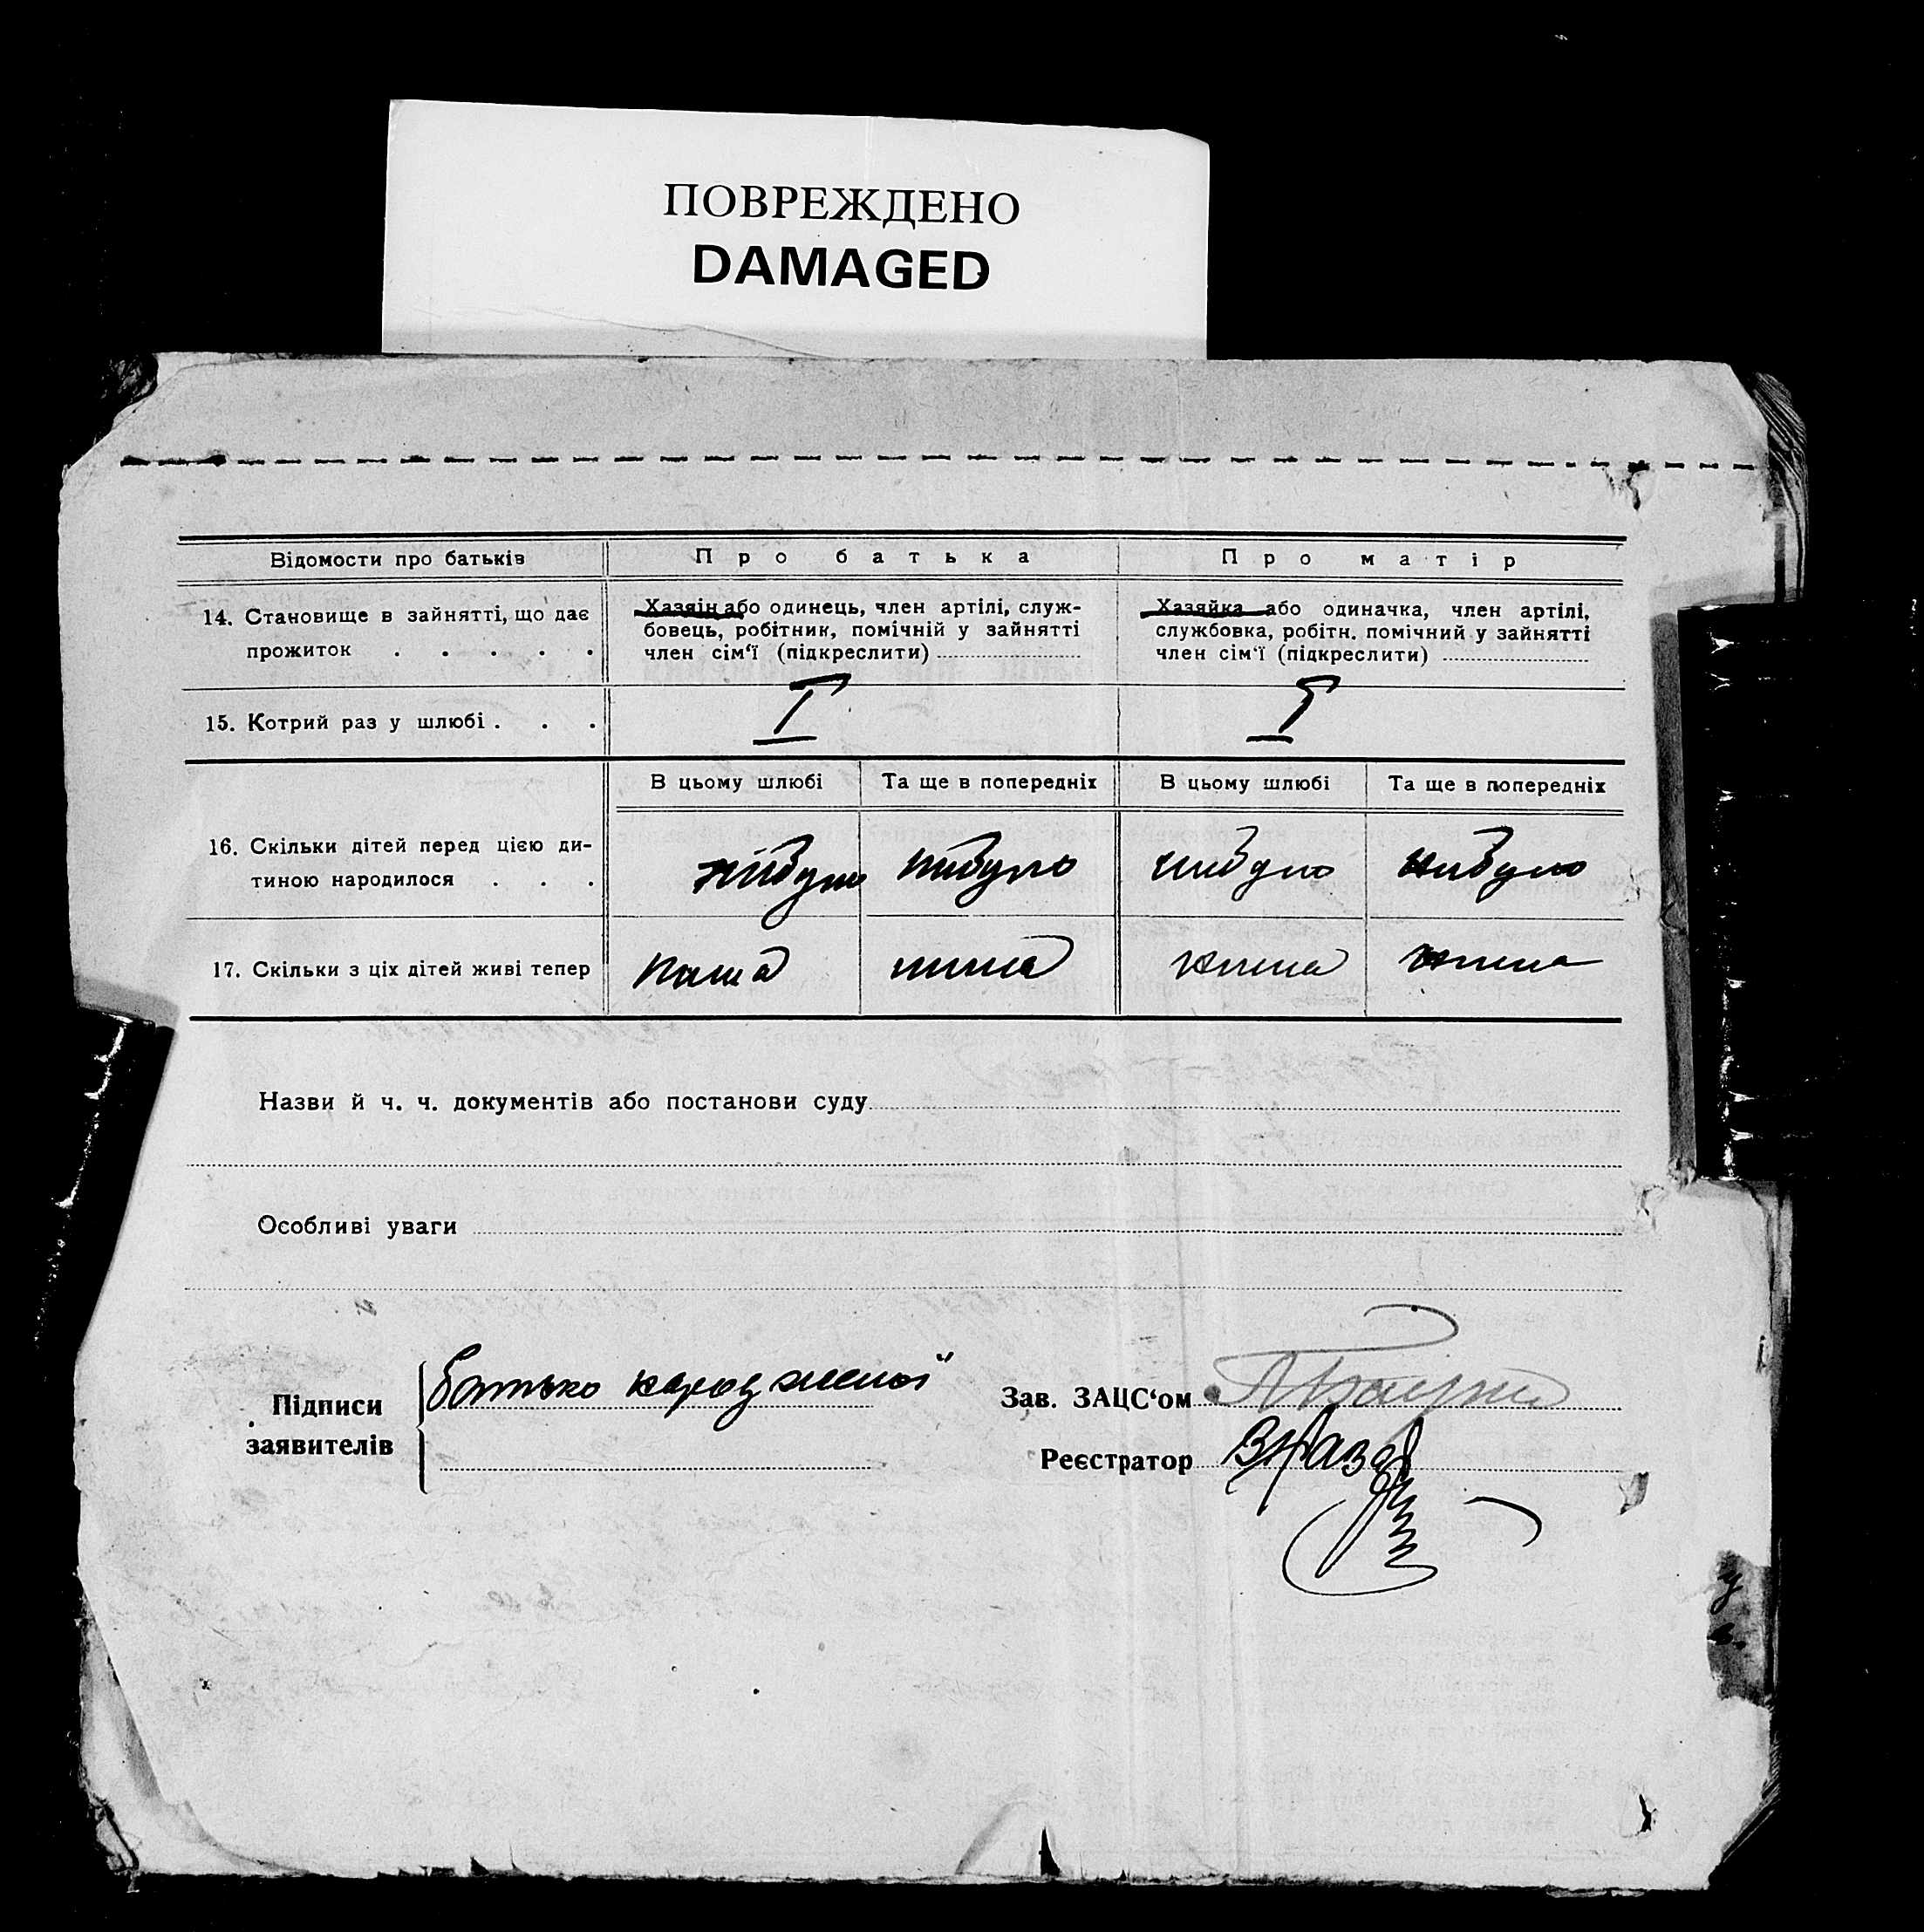 ПОВРЕЖДЕНО
DAMAGED
Відомости про батьків
Про батька
Про матір
14. Становище в зайнятті, що дає
прожиток . . . . .
Хазяїн або одинець, член артілі, служ-
бовець, робітник, помічній у зайнятті
член сім'ї (підкреслити)
Хазяйка або одиначка, член артілі,
службовка, робітн. помічний у зайнятті
член сім'ї (підкреслити)
15. Котрий раз у шлюбі . . .
I
I
В цьому шлюбі
Та ще в попередніх
В цьому шлюбі
Та ще в попередніх
16. Скільки дітей перед цією ди-
тиною народилося . . .
нибуло
нибуло
нибуло
нибуло
17. Скільки з ціх дітей живі тепер
нима
нима
нима
нима
Назви й ч. ч. документів або постанови суду
Особливі уваги
Підписи
заявителів
батько народженої
Зав. ЗАЦС'ом
Реєстратор